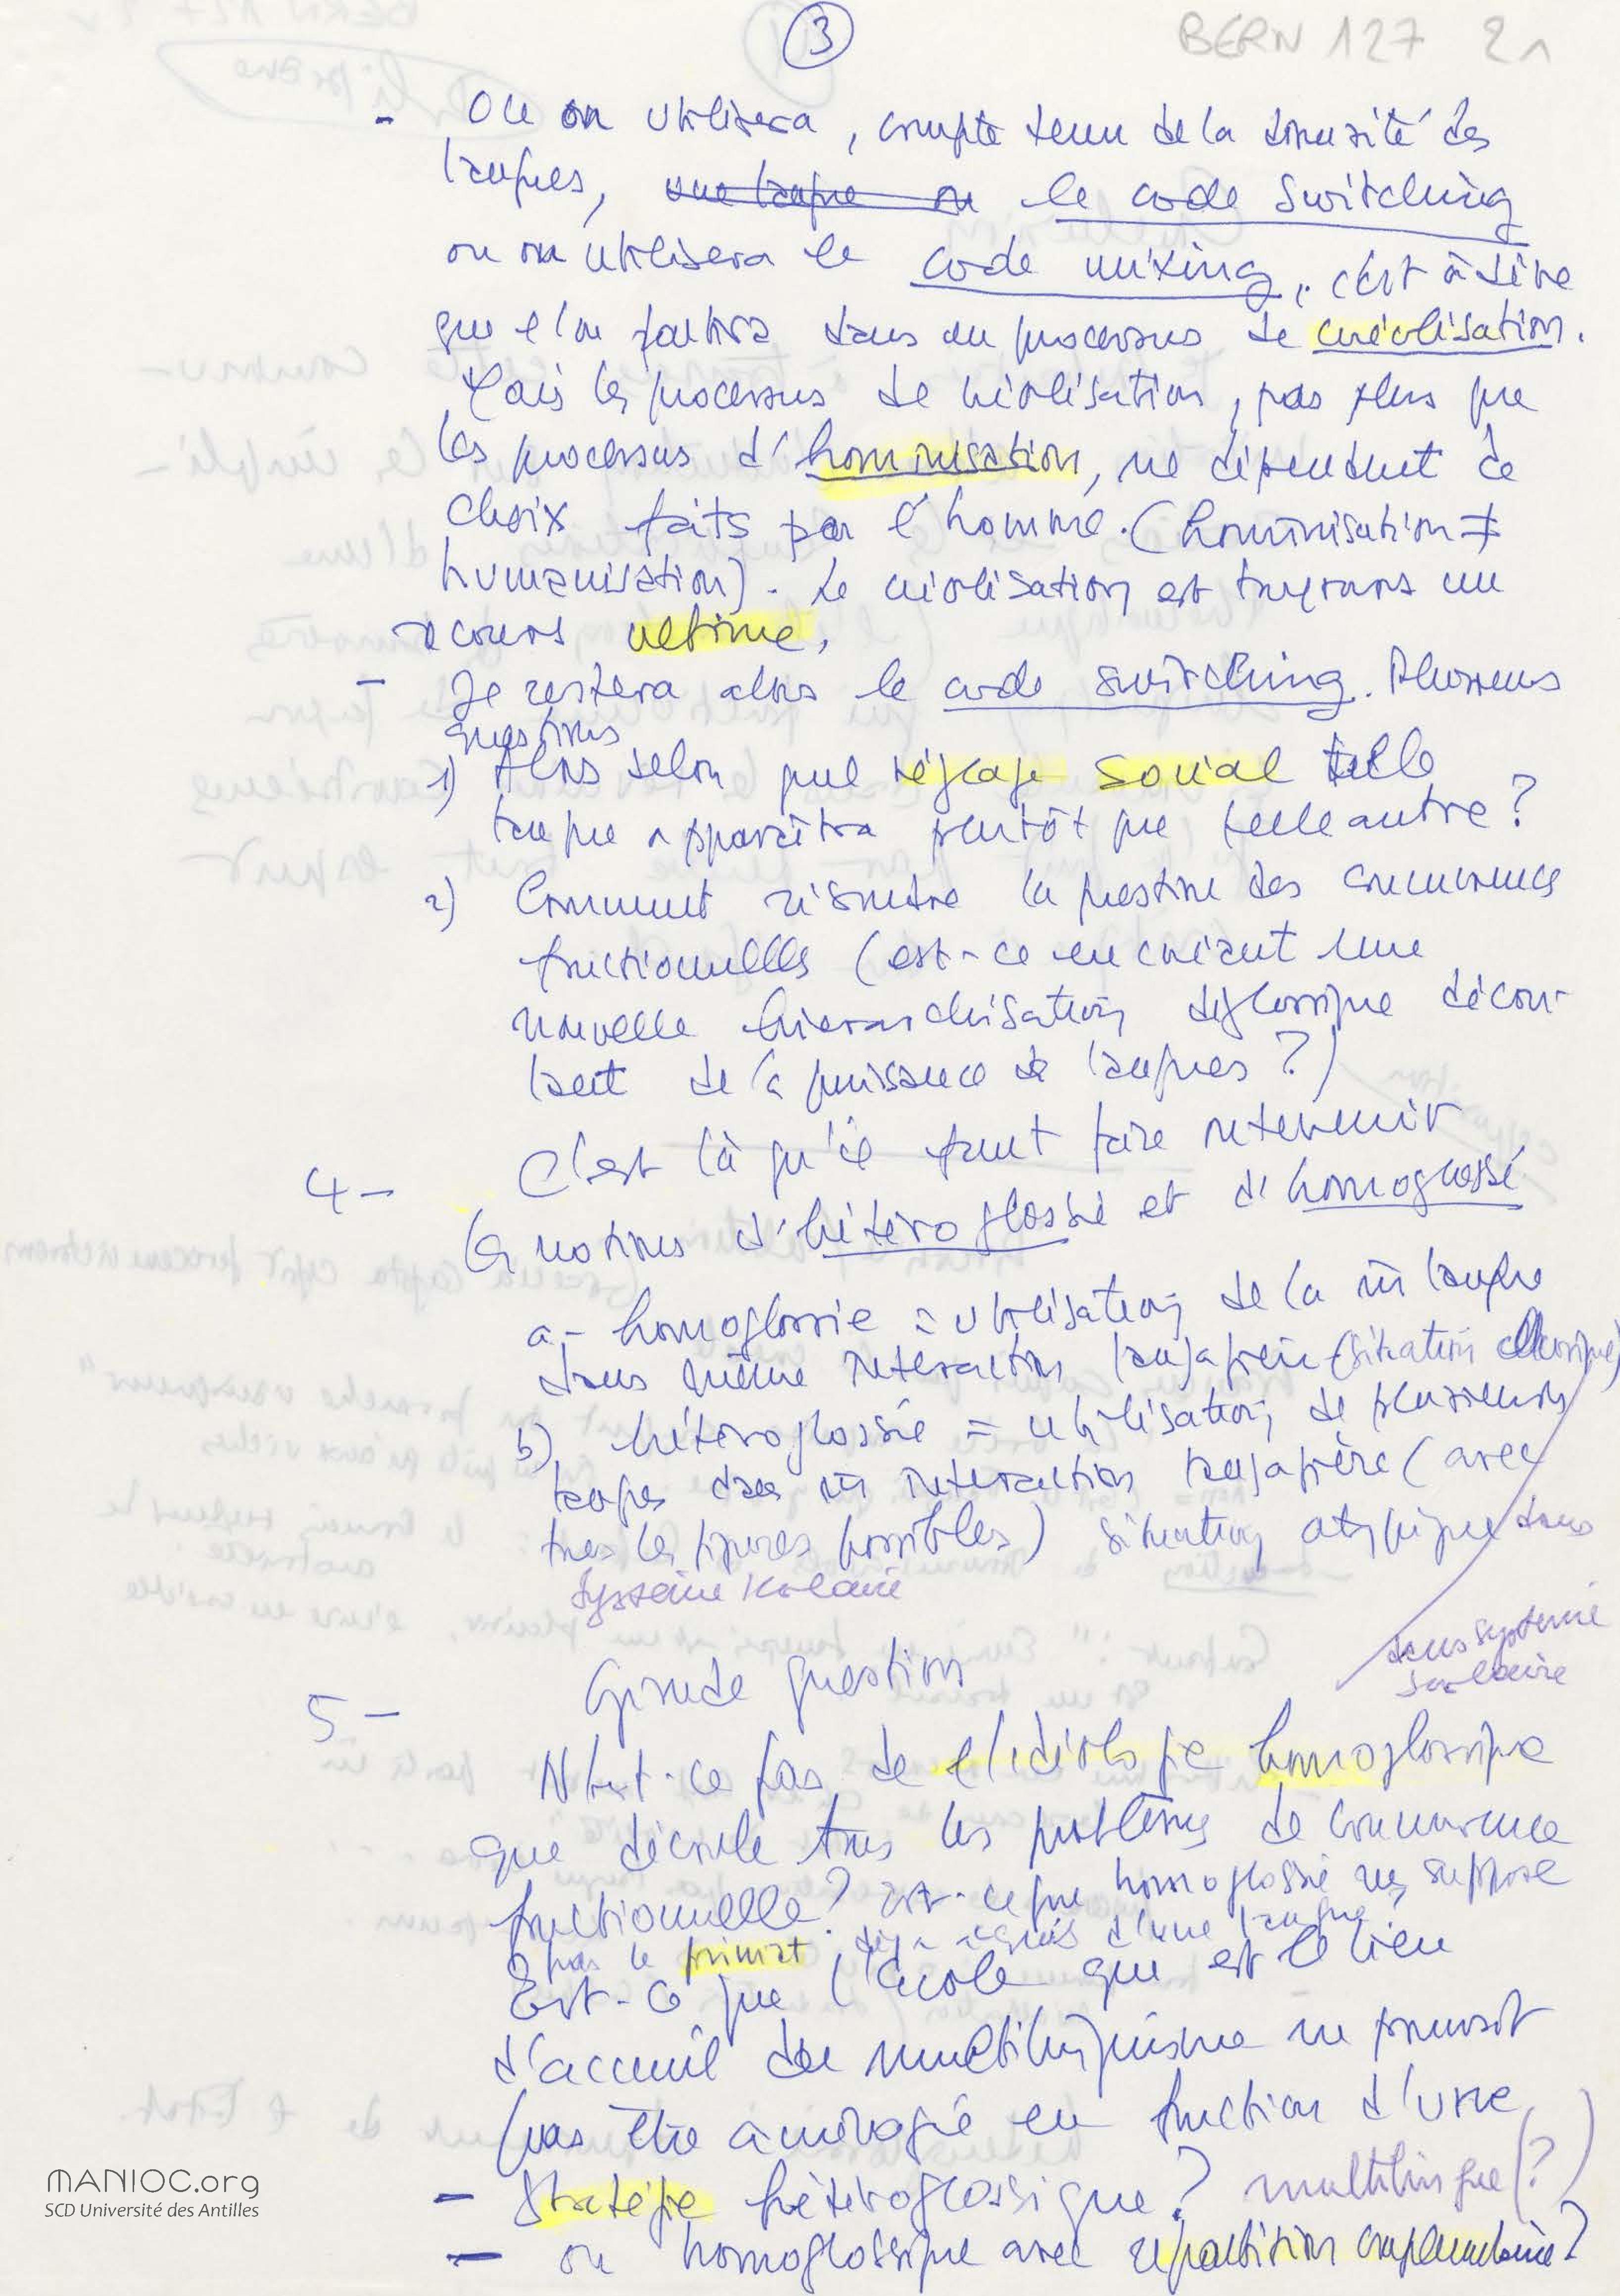 3
BERN 127 21
- Ou on utilisera, compte tenu de la des
langues, une langue ou le code switching
ou on utilisera le code mixing, c'est à dire
que l'on dans un processus de créolisation.
Mais les processus de créolisation, pas plus que
les processus d'hominisation, ne dépendent de
choix faits par l'homme. (hominisation ≠
humanisation). La créolisation est toujours un
recours ultime.
- Je restera alors le code switching. Plusieurs
questions
1) Alors selon quel réglage social telle
langue apparaîtra plutôt que telle autre ?
2) Comment résoudre la question des concurrences
fonctionnelles (est-ce en créant une
nouvelle hierarchisation diglossique décou-
lant de la puissance de langues ?)
4- C'est là qu'il faut faire intervenir
les notions d'hétéroglossie et d'homoglossie
a- homoglossie = utilisation de la m langue
dans même interaction langagière (situation classique)
b) hétéroglossie = utilisation de plusieurs
langues dans m interaction langagière (avec
tous les figures possibles) situation atypique dans
système scolaire
dans système
scolaire
5- Grande question
N'est-ce pas de l'idéologie homoglossique
que découle tous les problèmes de concurrence
fonctionnelle ? est-ce que homoglossie ne suppose
pas le primat d'une langue ?
Est-ce que l'école qui est le lieu
d'accueil du multilinguisme ne pourrait
pas être aménagé en fonction d'une
- stratégie hétéroglossique ? multilingue (?)
- ou homoglossique avec répartition complémentaire ?
MANIOC.org
SCD Université des Antilles